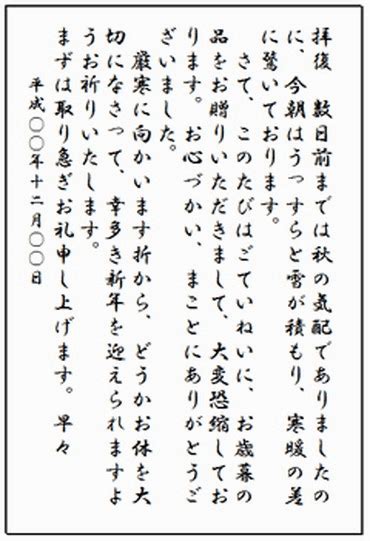 拝復　数日前までは秋の気配でありましたの
に、今朝はうっすらと雪が積もり、寒暖の差
に驚いております。
　さて、このたびはごていねいに、お歳暮の
品をお贈りいただきまして、大変恐縮してお
ります。お心づかい、まことにありがとうご
ざいました。
　厳寒に向かいます折から、どうかお体を大
切になさって、幸多き新年を迎えられますよ
うお祈りいたします。
まずは取り急ぎお礼申し上げます。　早々
平成〇〇年十二月〇〇日